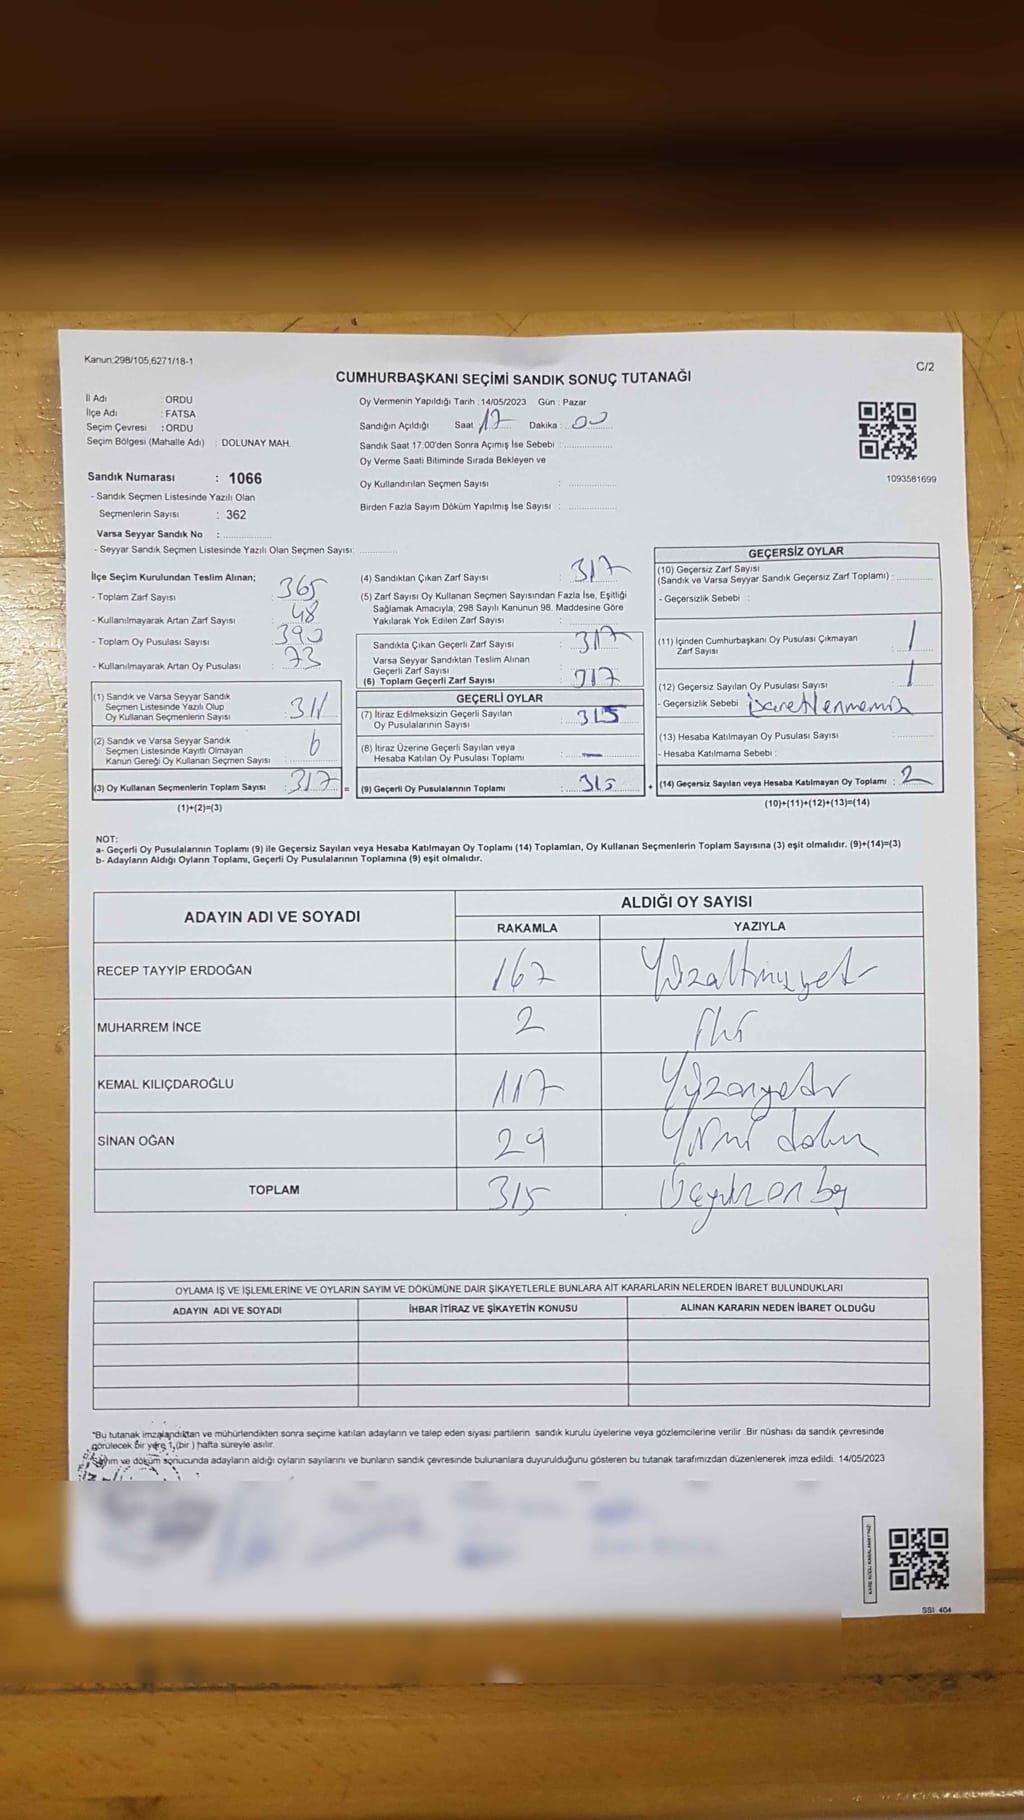 Kanun;298/105,6271/18-1
C/2
CUMHURBAŞKANI SEÇİMİ SANDIK SONUÇ TUTANAĞI
İl Adı : ORDU
İlçe Adı : FATSA
Seçim Çevresi : ORDU
Seçim Bölgesi (Mahalle Adı) : DOLUNAY MAH.
Oy Vermenin Yapıldığı Tarih : 14/05/2023 Gün : Pazar
Sandığın Açıldığı Saat 17 Dakika : 00
Sandık Saat 17.00'den Sonra Açımış İse Sebebi :
Oy Verme Saati Bitiminde Sırada Bekleyen ve
Oy Kullandırılan Seçmen Sayısı :
Birden Fazla Sayım Döküm Yapılmış İse Sayısı :
1093581699
Sandık Numarası : 1066
- Sandık Seçmen Listesinde Yazılı Olan
Seçmenlerin Sayısı : 362
Varsa Seyyar Sandık No :
- Seyyar Sandık Seçmen Listesinde Yazılı Olan Seçmen Sayısı:
İlçe Seçim Kurulundan Teslim Alınan;
- Toplam Zarf Sayısı : 365
- Kullanılmayarak Artan Zarf Sayısı : 48
- Toplam Oy Pusulası Sayısı : 390
- Kullanılmayarak Artan Oy Pusulası : 73
(1) Sandık ve Varsa Seyyar Sandık
Seçmen Listesinde Yazılı Olup
Oy Kullanan Seçmenlerin Sayısı : 311
(2) Sandık ve Varsa Seyyar Sandık
Seçmen Listesinde Kayıtlı Olmayan
Kanun Gereği Oy Kullanan Seçmen Sayısı : 6
(3) Oy Kullanan Seçmenlerin Toplam Sayısı : 317 =
(1)+(2)=(3)
(4) Sandıktan Çıkan Zarf Sayısı : 317
(5) Zarf Sayısı Oy Kullanan Seçmen Sayısından Fazla İse, Eşitliği
Sağlamak Amacıyla, 298 Sayılı Kanunun 98. Maddesine Göre
Yakılarak Yok Edilen Zarf Sayısı :
Sandıkta Çıkan Geçerli Zarf Sayısı : 317
Varsa Seyyar Sandıktan Teslim Alınan
Geçerli Zarf Sayısı
(6) Toplam Geçerli Zarf Sayısı : 317
GEÇERLİ OYLAR
(7) İtiraz Edilmeksizin Geçerli Sayılan
Oy Pusulalarının Sayısı : 315
(8) İtiraz Üzerine Geçerli Sayılan veya
Hesaba Katılan Oy Pusulası Toplamı : -
(9) Geçerli Oy Pusulalarının Toplamı : 315 +
GEÇERSİZ OYLAR
(10) Geçersiz Zarf Sayısı
(Sandık ve Varsa Seyyar Sandık Geçersiz Zarf Toplamı) :
- Geçersizlik Sebebi :
(11) İçinden Cumhurbaşkanı Oy Pusulası Çıkmayan
Zarf Sayısı : 1
(12) Geçersiz Sayılan Oy Pusulası Sayısı : 1
- Geçersizlik Sebebi : işaretlenmemiş
(13) Hesaba Katılmayan Oy Pusulası Sayısı :
- Hesaba Katılmama Sebebi :
(14) Geçersiz Sayılan veya Hesaba Katılmayan Oy Toplamı : 2
(10)+(11)+(12)+(13)=(14)
NOT:
a- Geçerli Oy Pusulalarının Toplamı (9) ile Geçersiz Sayılan veya Hesaba Katılmayan Oy Toplamı (14) Toplamları, Oy Kullanan Seçmenlerin Toplam Sayısına (3) eşit olmalıdır. (9)+(14)=(3)
b- Adayların Aldığı Oyların Toplamı, Geçerli Oy Pusulalarının Toplamına (9) eşit olmalıdır.
ADAYIN ADI VE SOYADI
ALDIĞI OY SAYISI
RAKAMLA YAZIYLA
RECEP TAYYİP ERDOĞAN 167 Yüzaltmışyedi
MUHARREM İNCE 2 İki
KEMAL KILIÇDAROĞLU 117 Yüzonyedi
SİNAN OĞAN 29 Yirmi dokuz
TOPLAM 315 Üçyüz on beş
OYLAMA İŞ VE İŞLEMLERİNE VE OYLARIN SAYIM VE DÖKÜMÜNE DAİR ŞİKAYETLERLE BUNLARA AİT KARARLARIN NELERDEN İBARET BULUNDUKLARI
ADAYIN ADI VE SOYADI İHBAR İTİRAZ VE ŞİKAYETİN KONUSU ALINAN KARARIN NEDEN İBARET OLDUĞU
*Bu tutanak imzalandıktan ve mühürlendikten sonra seçime katılan adayların ve talep eden siyasi partilerin sandık kurulu üyelerine veya gözlemcilerine verilir .Bir nüshası da sandık çevresinde
görülecek bir yere 1 (bir ) hafta süreyle asılır.
Sayım ve döküm sonucunda adayların aldığı oyların sayılarını ve bunların sandık çevresinde bulunanlara duyurulduğunu gösteren bu tutanak tarafımızdan düzenlenerek imza edildi. 14/05/2023
SSI 404